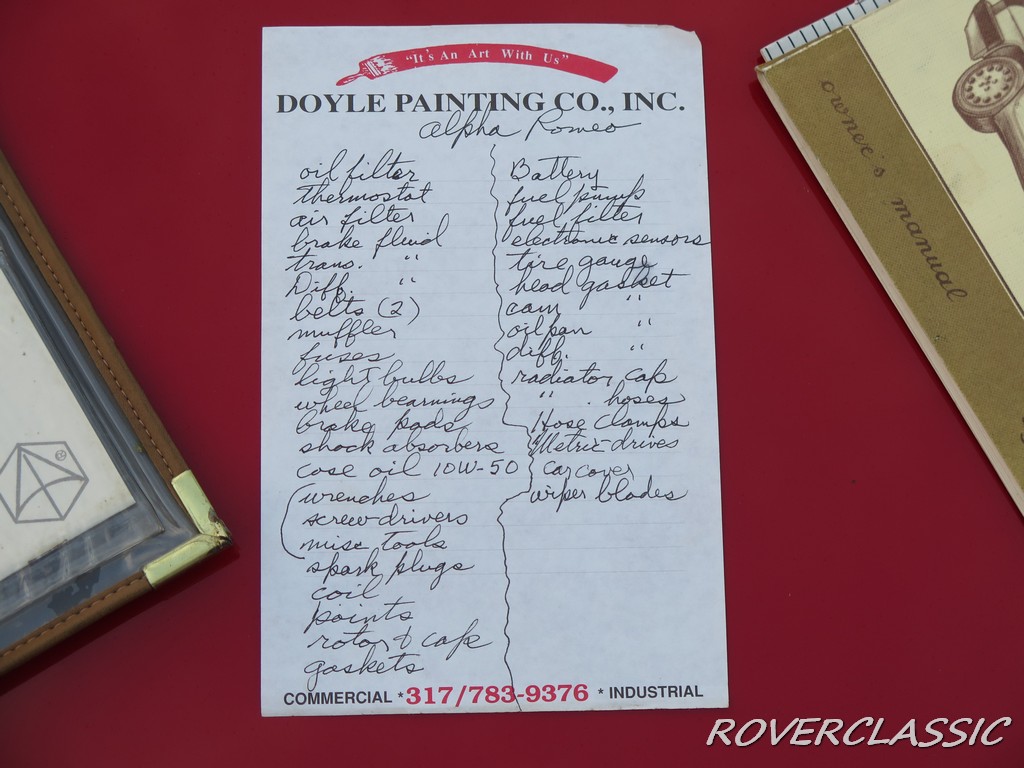 "It's An Art With Us"
DOYLE PAINTING CO., INC.
Alpha Romeo
oil filter
thermostat
air filter
brake fluid
trans. "
Diff. "
belts (2)
muffler
fuses
light bulbs
wheel bearnings
brake pads
shock absorbers
case oil 10W-50
wrenches
screw-drivers
misc tools
spark plugs
coil
points
rotor & cap
gaskets
Battery
fuel pump
fuel filter
electronic sensors
tire gauge
head gasket
cam "
oil pan "
diff. "
radiator cap
" . hoses
Hose Clamps
Metric-drives
car cover
wiper blades
COMMERCIAL * 317/783-9376 * INDUSTRIAL
owner's manual
ROVERCLASSIC